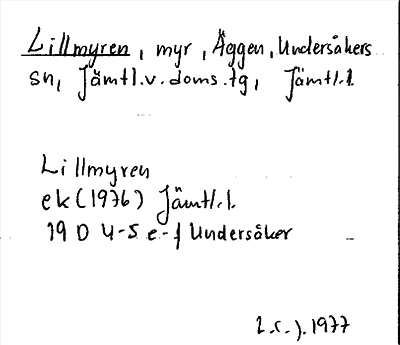 Lillmyren, myr, Äggen, Undersåkers
sn, Jämtl.v.doms.tg, Jämtl.l.
Lillmyren
ek (1976) Jämtl.l.
19 D 4-5 e-f Undersåker
1977